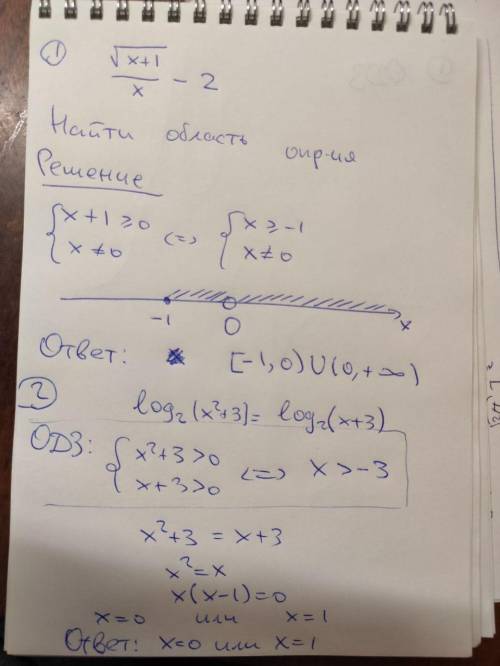 1
√(x+1)/x − 2
Найти область опр-ия
Решение
{x+1≥0 {x≥-1
{x≠0 <=> {x≠0
-1 0 x
Ответ: [-1,0)∪(0,+∞)
2
log₂(x²+3)= log₂(x+3)
ОДЗ: {x²+3>0
{x+3>0 <=> x>-3
x²+3 = x+3
x²=x
x(x-1)=0
x=0 или x=1
Ответ: x=0 или x=1